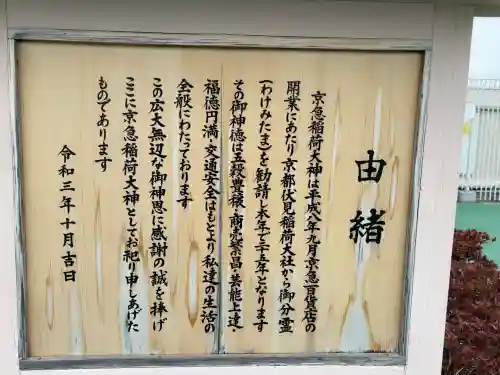 由緒
京急稲荷大神は平成八年九月京急百貨店の
開業にあたり京都伏見稲荷大社から御分霊
(わけみたま)を勧請し本年で二十五年となります
その御神徳は五穀豊穣・商売繁昌・芸能上達・
福徳円満・交通安全はもとより私達の生活の
全般にわたっております
この広大無辺な御神恩に感謝の誠を捧げ
ここに京急稲荷大神としてお祀り申しあげた
ものであります
令和三年十月吉日